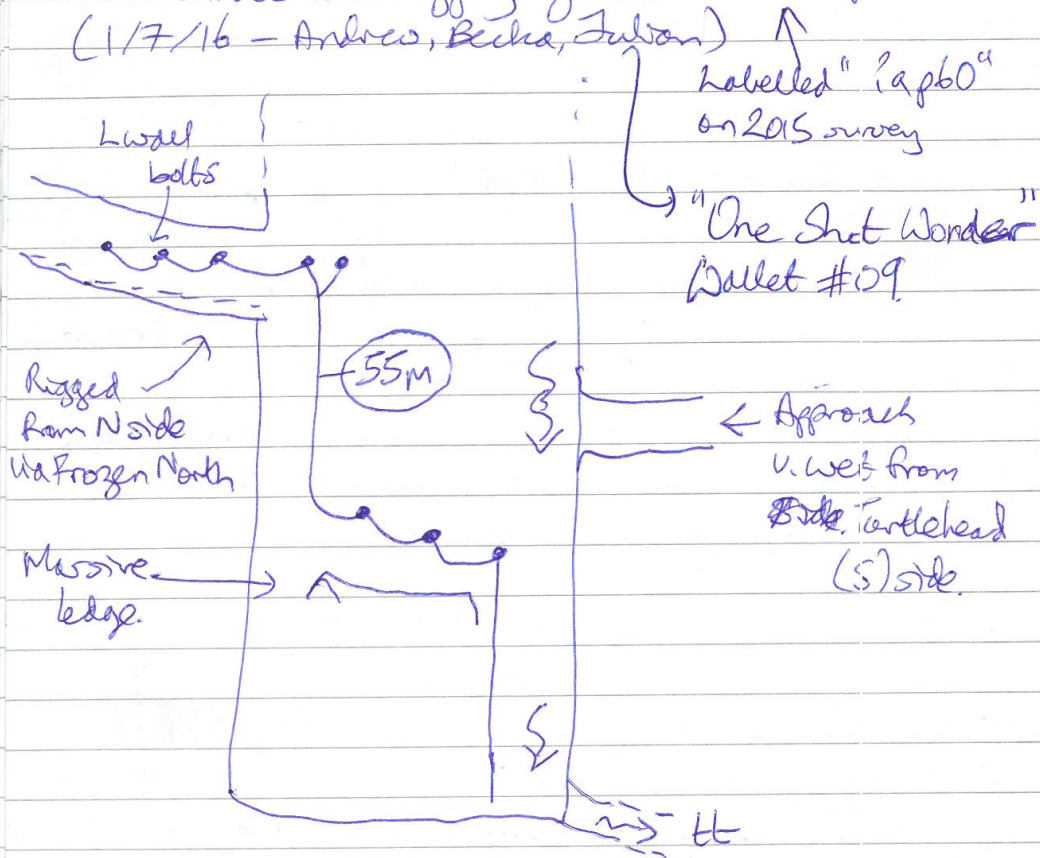 (1/7/16 - Andrew, Becka, Julian)
Labelled "?ap60"
on 2015 survey
L wall
bolts
"One Shot Wonder"
Wallet #09
55m
Rigged
from N side
via Frozen North
← Approach
v. wet from
Turtlehead
(S) side.
Massive
ledge.
tt